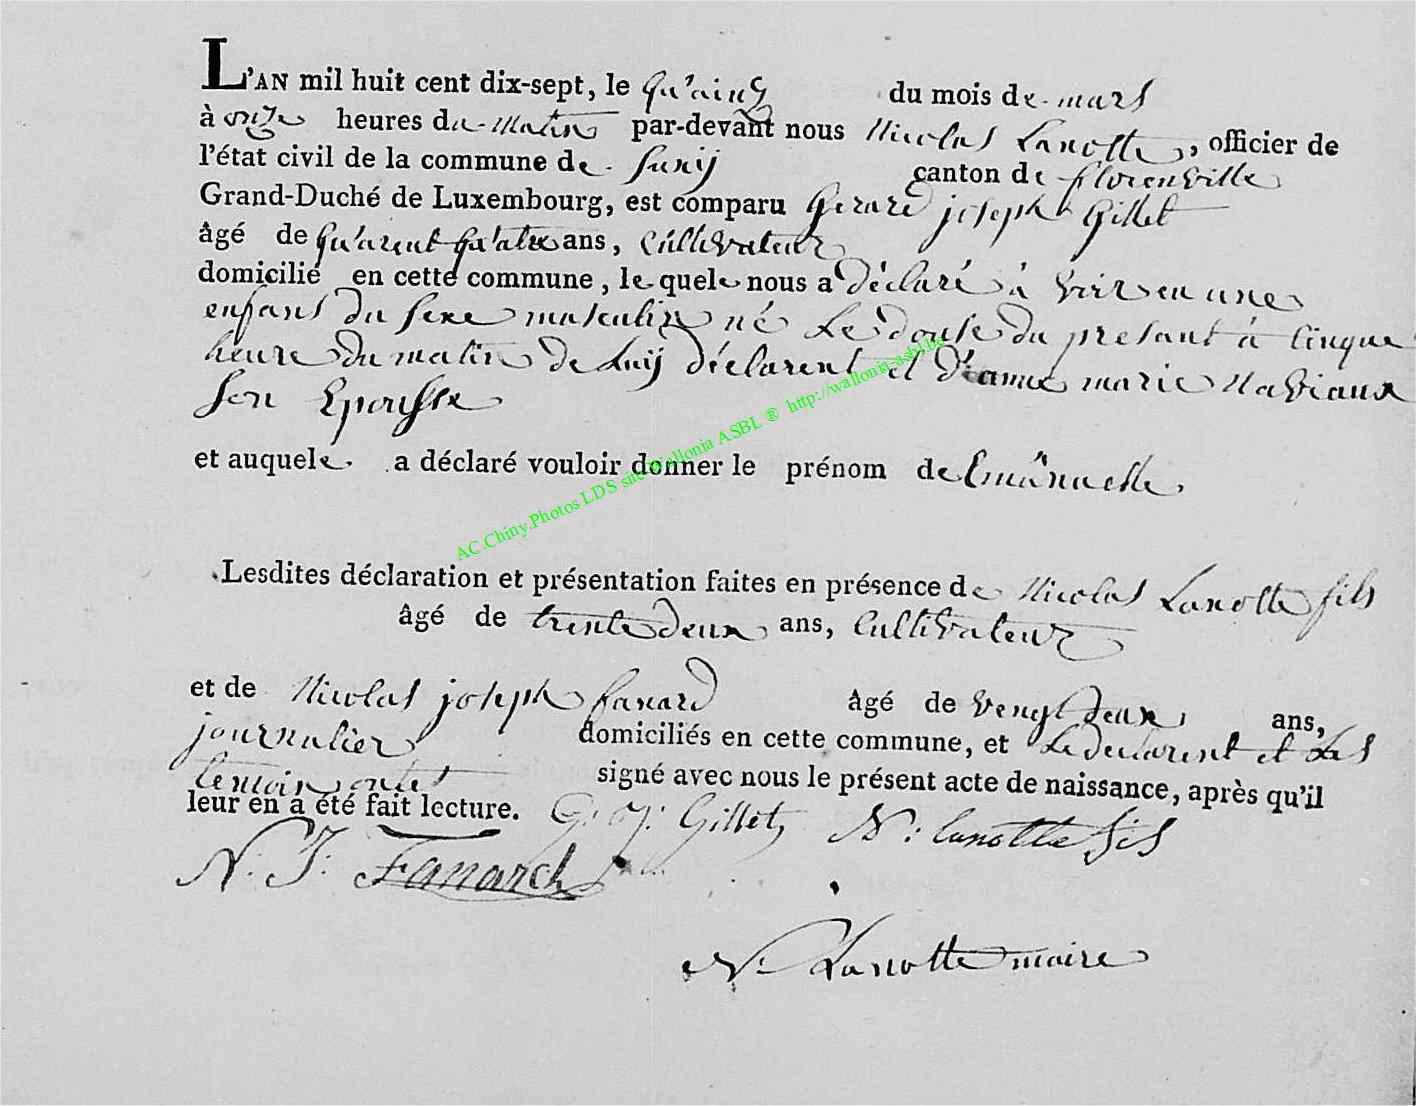 L'AN mil huit cent dix-sept, le Qu'ainz du mois de mars
à onze heures du matin par-devant nous Nicolas Lanotte, officier de
l'état civil de la commune de Suxij canton de florenville
Grand-Duché de Luxembourg, est comparu Gerard joseph Gillet
âgé de Qu'arent Qu'atre ans, Cultivateur
domicilié en cette commune, le quel nous a déclaré à voir eu une
enfans du sexe masculin né Le douse du presant à Cinque
heure du matin De Luij déclarent et D'anne marie Naviaux
son Epousse
et auquel a déclaré vouloir donner le prénom de Emmanuelle
Lesdites déclaration et présentation faites en présence de Nicolas Lanotte fils
âgé de trente deux ans, Cultivateur
et de Nicolas joseph fanard âgé de vengt deux ans,
journalier domiciliés en cette commune, et Le declarent et Les
temoin ontet signé avec nous le présent acte de naissance, après qu'il
leur en a été fait lecture. G. J. Gillet N: lanotte fils
N. J. Fanard
N. Lanotte maire
AC.Chiny.Photos LDS site Wallonia ASBL ® http://wallonia-asbl.be